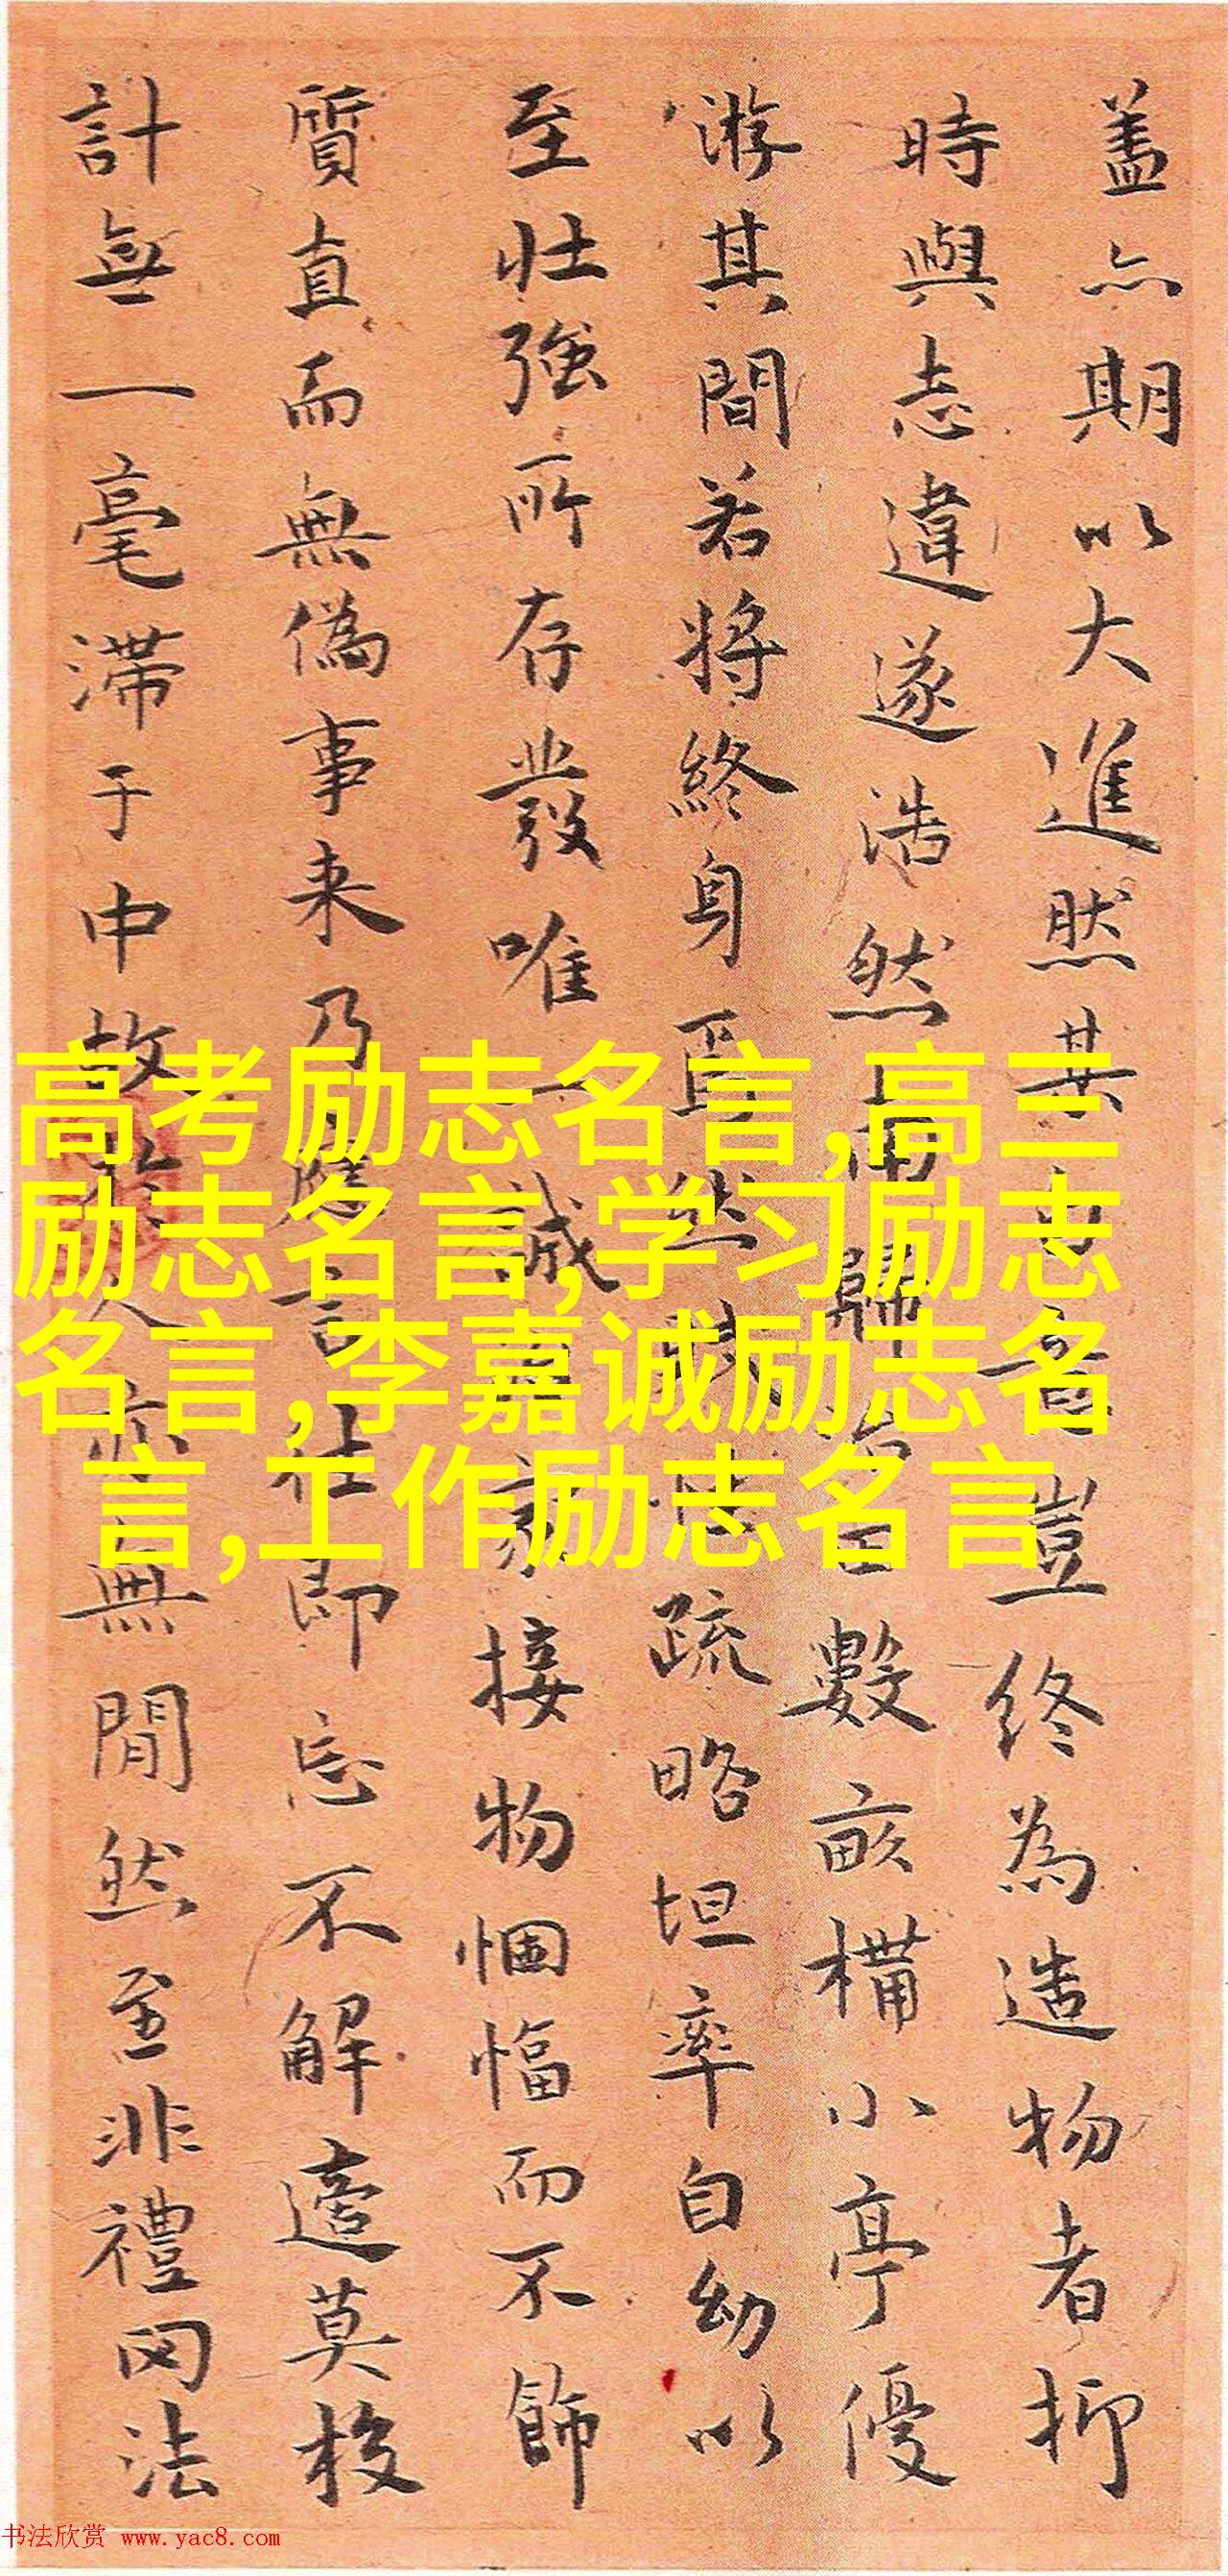 蓋亦期以大進然其豈終為造物者抑
時與志違遂浩然而歸治田數畝構小亭優
游其間若將終身焉然疏略坦率自幼以
至壯強所存發唯一誠接物悃愊而不飾
質直而無偽事来乃應言社即忘不解邉莫校
計無一毫滞于中故人亦無閒然至非禮罔法
高考励志名言,高三
励志名言,学习励志
名言,李嘉诚励志名
言,工作励志名言
书法欣赏 www.yac8.com